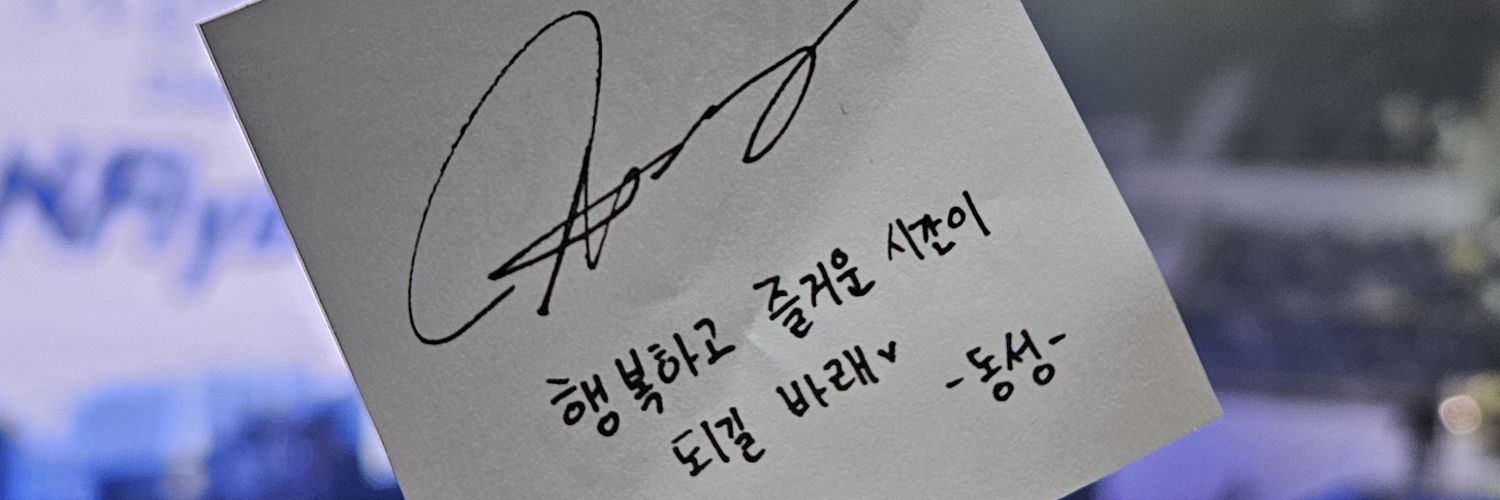 행복하고 즐거운 시간이
되길 바래♥
-동성-